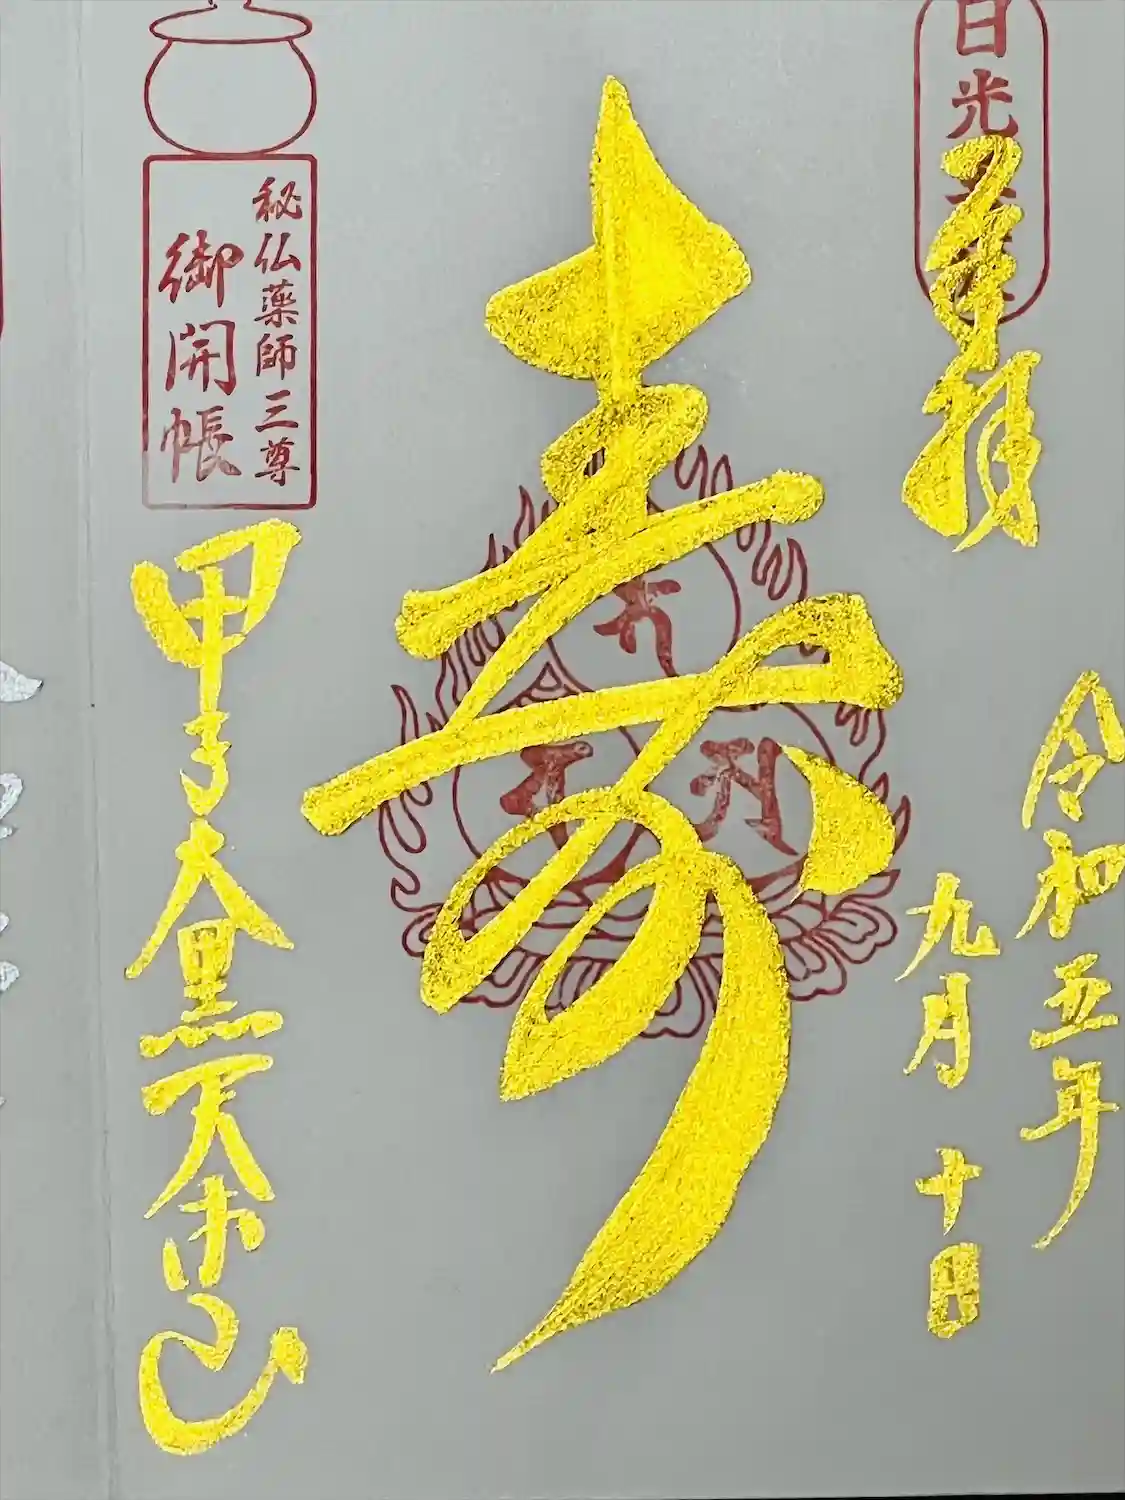 日光
奉拝
令和五年
九月十日
寿
秘仏薬師三尊
御開帳
甲子大黒天本山